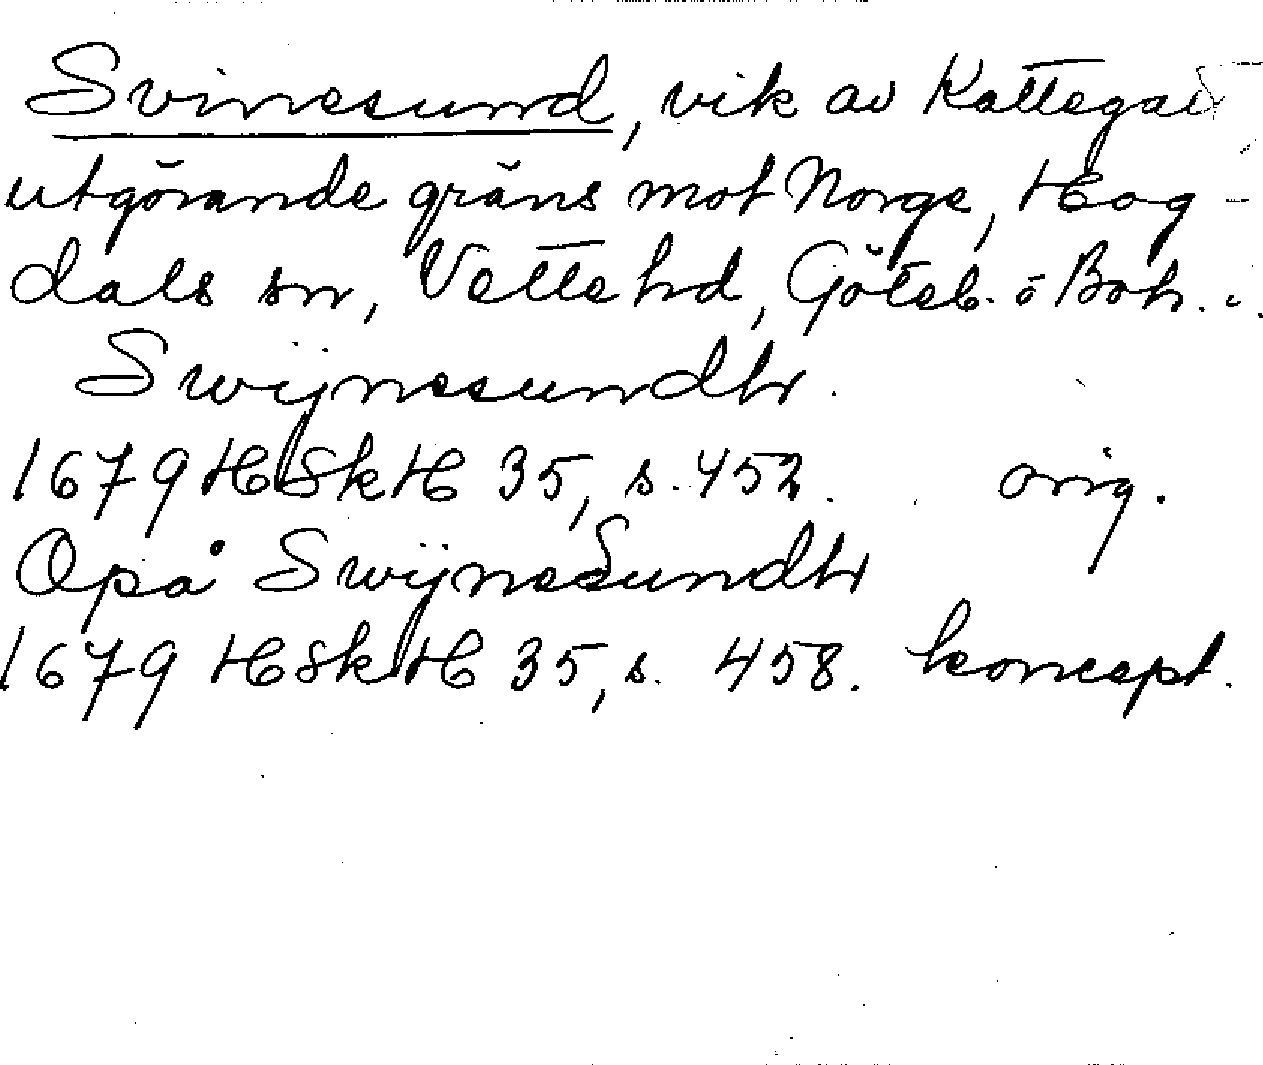 Svinesund, vik av Kattegatt
utgörande gräns mot Norge, Hog-
dals sn, Vette hd, Göteb. o Boh. l.
Swijnesundh.
1679 HSkH 35, s. 452. orig.
Opå SwijneSundh
1679 HSkH 35, s. 458. koncept.